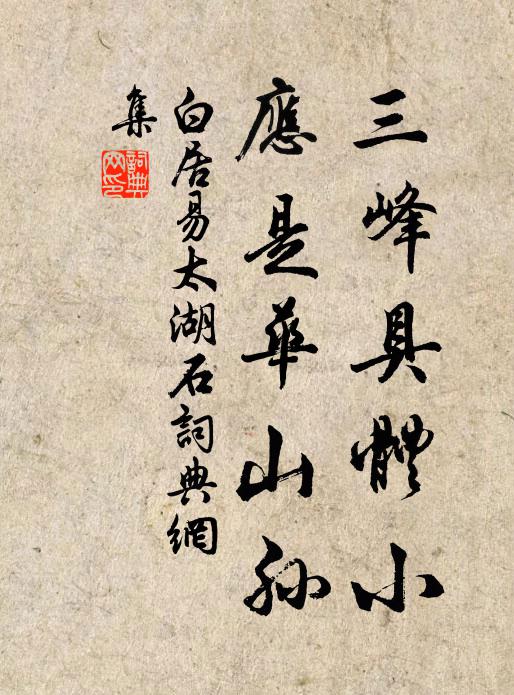 三峰具體小
應是華山孫
白居易太湖石詞典網
集
詞典
网印